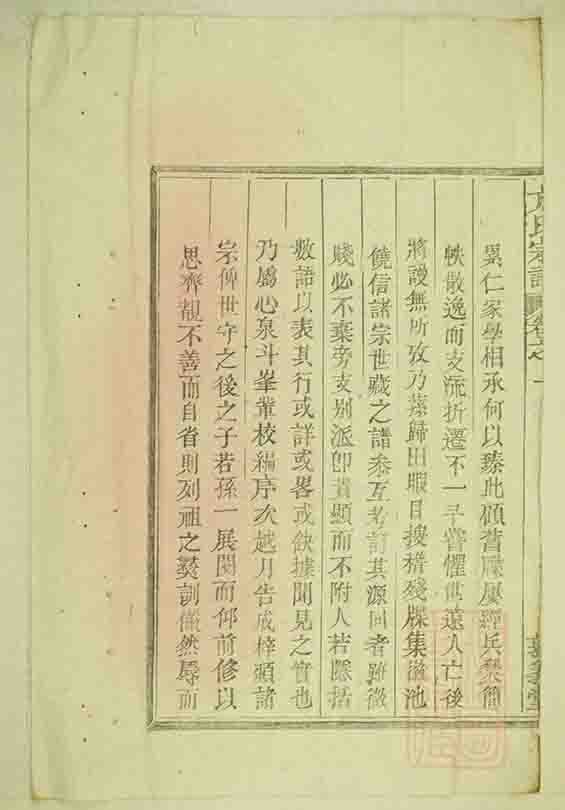 累仁家學相承何以臻此顧舊牒屢經兵燹簡
帙散逸而支流折遷不一早嘗懼世遠人亡後
將謾無所攷乃荪歸田暇日搜稽殘牒集滋池
饒信諸宗世藏之譜叅互考訂其源同者雖微
賤必不棄旁支别派卽貴顯而不附人若隱括
數語以表其行或詳或畧或缺據聞見之實也
乃屬心泉斗峯輩校編序次越月告成梓頒諸
宗俾世守之後之子若孫一展閱而仰前修以
思齊覩不善而自省則列祖之奬訓儼然辱而
氏宗譜
卷之一